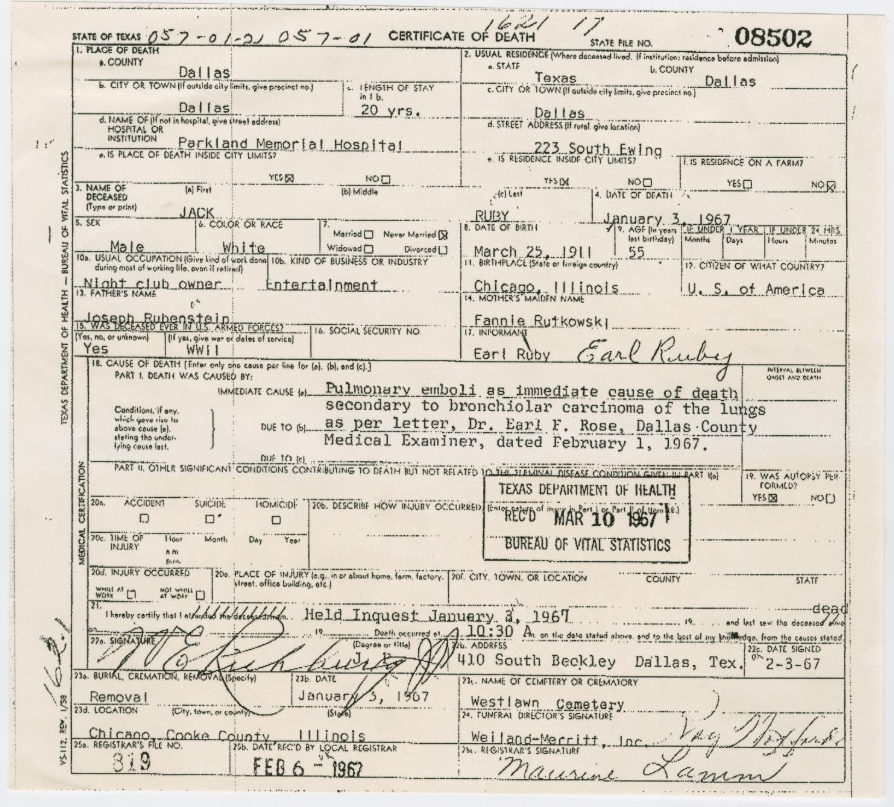 1621 17
STATE OF TEXAS 057-01-21 057-01 CERTIFICATE OF DEATH STATE FILE NO. 08502
1. PLACE OF DEATH
a. COUNTY
Dallas
2. USUAL RESIDENCE (Where deceased lived. If institution: residence before admission)
a. STATE
Texas
b. COUNTY
Dallas
b. CITY OR TOWN (If outside city limits, give precinct no.)
Dallas
c. LENGTH OF STAY
in 1 b.
20 yrs.
c. CITY OR TOWN (If outside city limits, give precinct no.)
Dallas
d. NAME OF (If not in hospital, give street address)
HOSPITAL OR
INSTITUTION Parkland Memorial Hospital
d. STREET ADDRESS (If rural, give location)
223 South Ewing
e. IS PLACE OF DEATH INSIDE CITY LIMITS?
YES☒ NO☐
e. IS RESIDENCE INSIDE CITY LIMITS?
YES☒ NO☐
f. IS RESIDENCE ON A FARM?
YES☐ NO☒
3. NAME OF (a) First (b) Middle (c) Last
DECEASED
(Type or print) JACK RUBY
4. DATE OF DEATH
January 3, 1967
5. SEX
Male
6. COLOR OR RACE
White
7.
Married☐ Never Married☒
Widowed☐ Divorced☐
8. DATE OF BIRTH
March 25, 1911
9. AGE (In years
last birthday)
55
IF UNDER 1 YEAR IF UNDER 24 HRS.
Months Days Hours Minutes
10a. USUAL OCCUPATION (Give kind of work done
during most of working life, even if retired)
Night club owner
10b. KIND OF BUSINESS OR INDUSTRY
Entertainment
11. BIRTHPLACE (State or foreign country)
Chicago, Illinois
12. CITIZEN OF WHAT COUNTRY?
U. S. of America
13. FATHER'S NAME
Joseph Rubenstein
14. MOTHER'S MAIDEN NAME
Fannie Rutkowski
15. WAS DECEASED EVER IN U.S. ARMED FORCES?
(Yes, no, or unknown) (If yes, give war or dates of service)
Yes WWII
16. SOCIAL SECURITY NO.
17. INFORMANT
Earl Ruby Earl Ruby
18. CAUSE OF DEATH [Enter only one cause per line for (a), (b), and (c).]
INTERVAL BETWEEN
ONSET AND DEATH
PART I. DEATH WAS CAUSED BY:
IMMEDIATE CAUSE (a) Pulmonary emboli as immediate cause of death
secondary to bronchiolar carcinoma of the lungs
Conditions, if any,
which gave rise to
above cause (a),
stating the under-
lying cause last.
DUE TO (b) as per letter, Dr. Earl F. Rose, Dallas County
Medical Examiner, dated February 1, 1967.
DUE TO (c)
PART II. OTHER SIGNIFICANT CONDITIONS CONTRIBUTING TO DEATH BUT NOT RELATED TO THE TERMINAL DISEASE CONDITION GIVEN IN PART I(a)
19. WAS AUTOPSY PER-
FORMED?
YES☒ NO☐
TEXAS DEPARTMENT OF HEALTH
REC'D MAR 10 1967
BUREAU OF VITAL STATISTICS
20a. ACCIDENT SUICIDE HOMICIDE
☐ ☐ ☐
20b. DESCRIBE HOW INJURY OCCURRED. (Enter nature of injury in Part I or Part II of item 18.)
20c. TIME OF Hour Month Day Year
INJURY a.m.
p.m.
20d. INJURY OCCURRED
WHILE AT WORK ☐ NOT WHILE AT WORK ☐
20e. PLACE OF INJURY (e.g., in or about home, farm, factory,
street, office building, etc.)
20f. CITY, TOWN, OR LOCATION COUNTY STATE
21.
I hereby certify that I attended the deceased from Held Inquest January 3, 1967 19 and last saw the deceased alive dead
on 19 Death occurred at 10:30 A. m. on the date stated above, and to the best of my knowledge, from the causes stated.
22a. SIGNATURE (Degree or title)
J. P.
22b. ADDRESS
410 South Beckley Dallas, Tex.
22c. DATE SIGNED
2-3-67
23a. BURIAL, CREMATION, REMOVAL (Specify)
Removal
23b. DATE
January 3, 1967
23c. NAME OF CEMETERY OR CREMATORY
Westlawn Cemetery
23d. LOCATION (City, town, or county) (State)
Chicago, Cooke County Illinois
24. FUNERAL DIRECTOR'S SIGNATURE
Weiland-Merritt, Inc.
25a. REGISTRAR'S FILE NO.
819
25b. DATE REC'D BY LOCAL REGISTRAR
FEB 6 - 1967
25c. REGISTRAR'S SIGNATURE
Maurine Lamm
TEXAS DEPARTMENT OF HEALTH — BUREAU OF VITAL STATISTICS
MEDICAL CERTIFICATION
162.1
VS-112, REV. 1/58